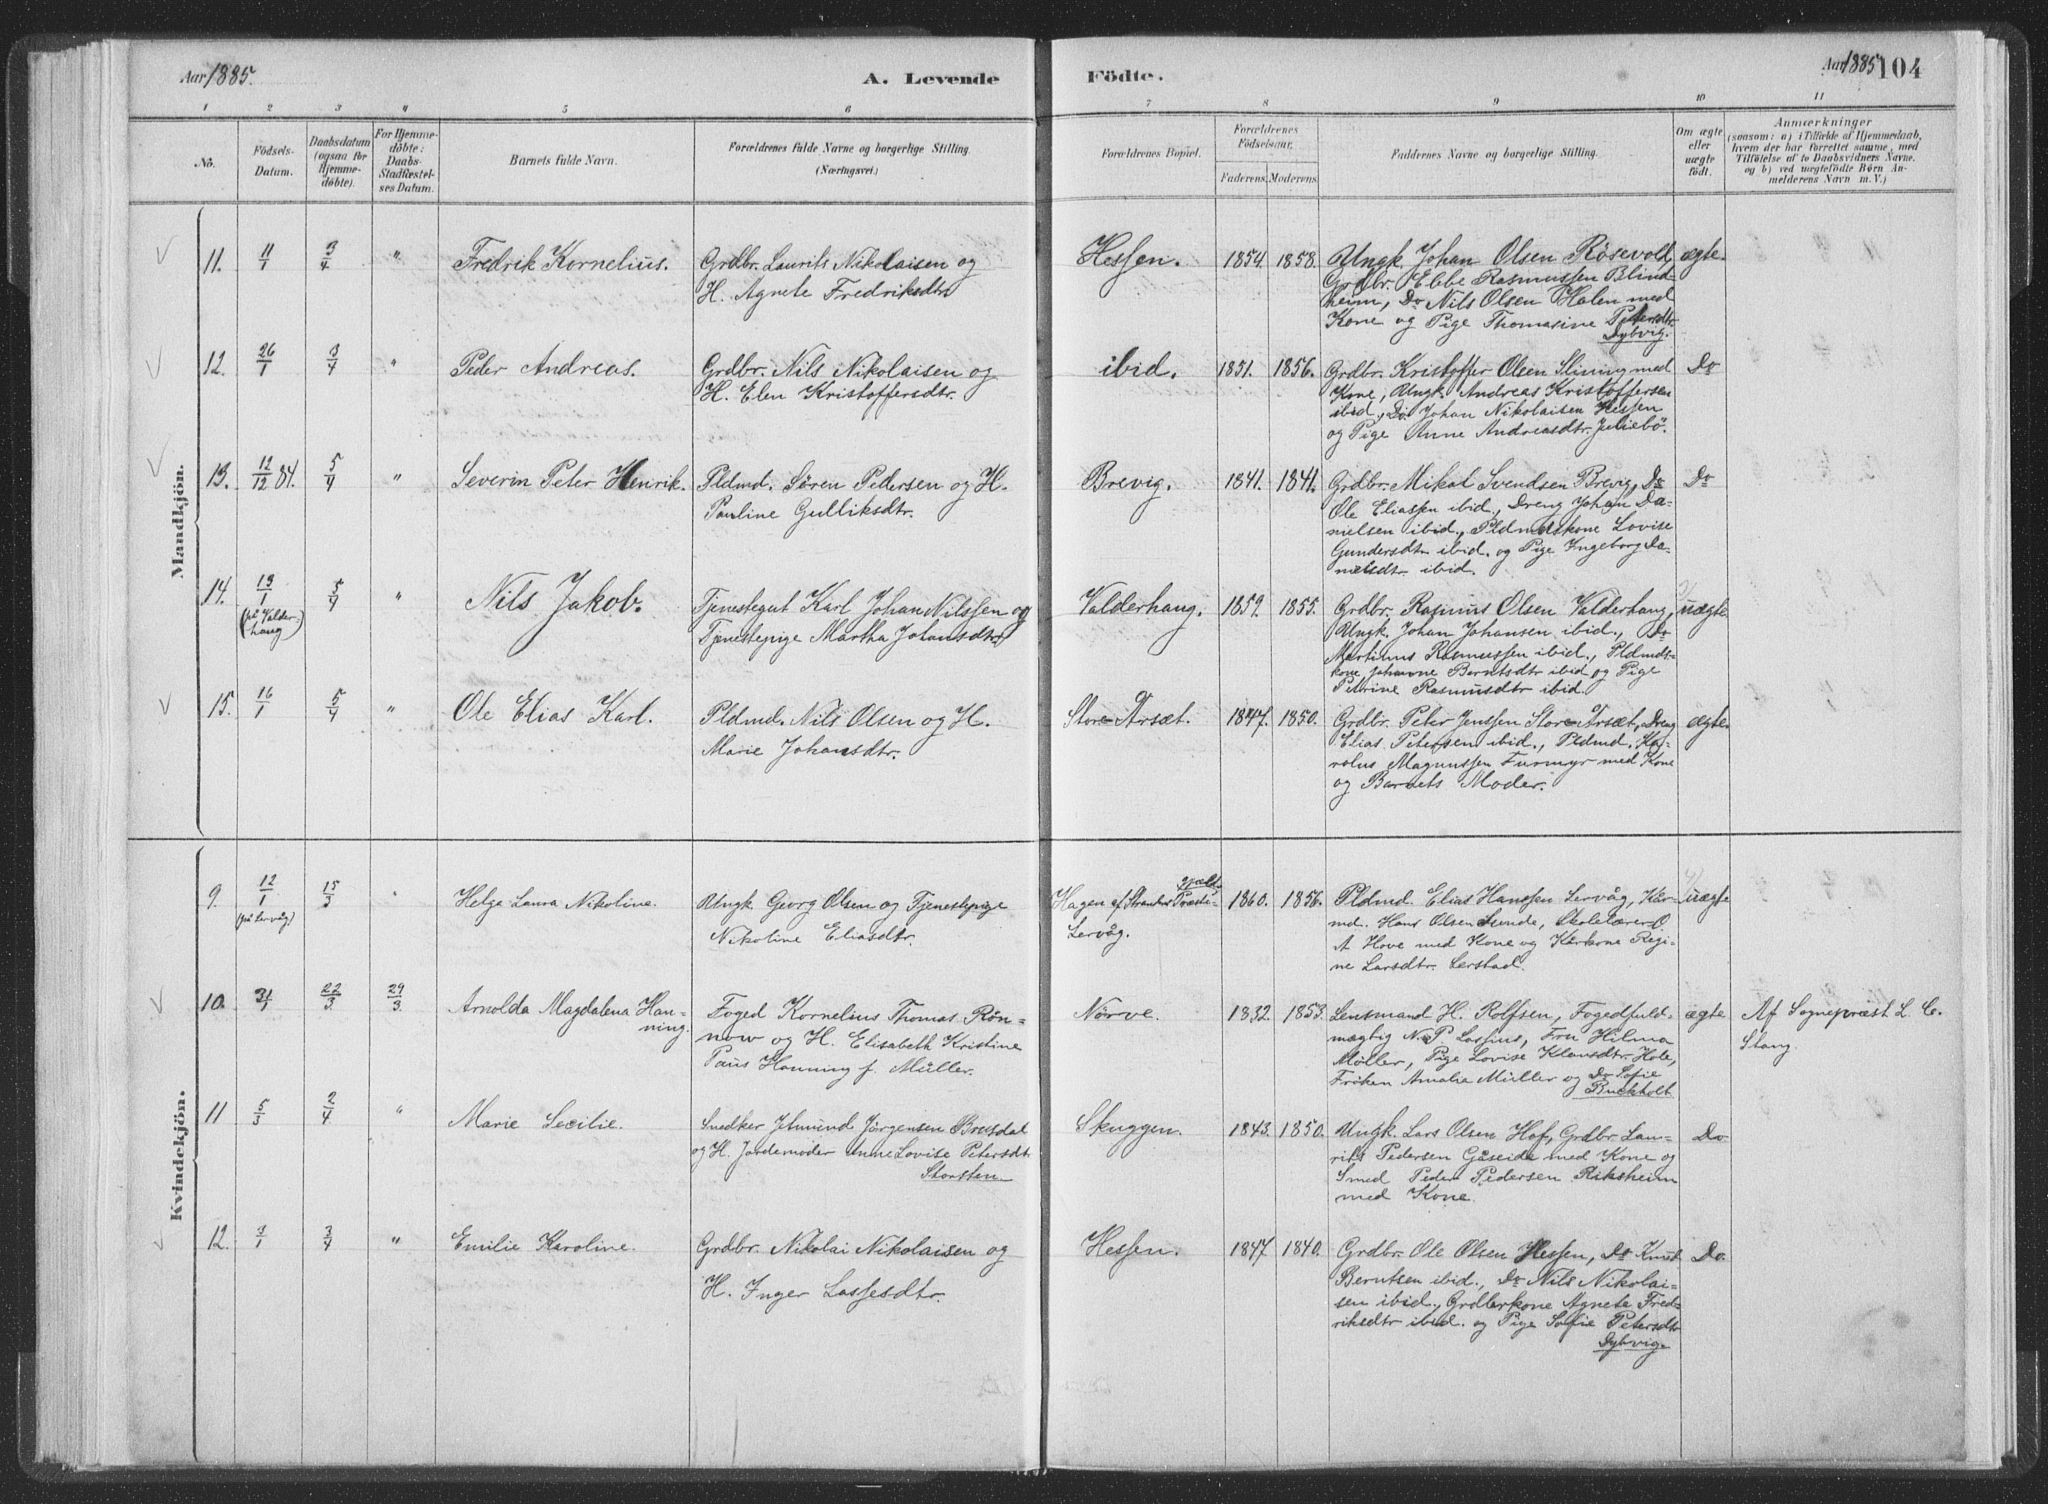 Aar 1885.
A. Levende
Födte.
Aar 1885
104
1 2 3 4 5 6 7 8 9 10 11
No.
Födsels-
Datum.
Daabsdatum
(ogsaa for
Hjemme-
döbte).
For Hjemme-
döbte:
Daabs-
Stadfæstel-
ses Datum.
Barnets fulde Navn.
Forældrenes fulde Navne og borgerlige Stilling.
(Næringsvei.)
Forældrenes Bopæl.
Forældrenes
Födselsaar.
Faderens. Moderens.
Faddernes Navne og borgerlige Stilling.
Om ægte
eller
uægte
födt.
Anmærkninger
(saasom: a) i Tilfælde af Hjemmedaab,
hvem der har forrettet samme, med
Tilföielse af to Daabsvidners Navne.
og b) ved uægtefödte Börn An-
melderens Navn m. V.)
Mandkjön.
11. 11/1 3/4 " Fredrik Kornelius.
Grdbr. Laurits Nikolaisen og
H. Agnete Fredriksdtr
Hessen. 1854. 1858.
Ungk. Johan Olsen Rösevold,
Grdbr. Ebbe Rasmussen Blind-
heim, Do Nils Olsen Holen med
Kone og Pige Thomasine Petersdtr.
Dybvig.
ægte.
12. 26/1 3/4 " Peder Andreas.
Grdbr. Nils Nikolaisen og
H. Elen Kristoffersdtr.
ibid. 1851. 1856.
Grdbr. Kristoffer Olsen Slining med
Kone, Ungk. Andreas Kristoffersen
ibid., Do. Johan Nikolaisen Hessen
og Pige Anne Andreasdtr. Juliebö.
Do
13. 12/12 84. 5/4 " Severin Peter Henrik.
Pldmd. Sören Pedersen og H.
Pauline Gulliksdtr.
Brevig. 1841. 1841.
Grdbr. Mikal Svendsen Brevig, Do
Ole Eliassen ibid., Dreng Johan Da-
nielsen ibid., Pldmdskone Lovise
Gundersdtr ibid. og Pige Ingeborg Da-
nielsdtr. ibid.
Do
14. 13/1 5/4 " Nils Jakob.
(på Valder-
haug)
Tjenestegut Karl Johan Nilssen og
Tjenestepige Martha Johansdtr
Valderhaug. 1859. 1855.
Grdbr. Rasmus Olsen Valderhaug,
Ungk. Johan Johansen ibid., Do
Martinus Rasmussen ibid., Pldmds-
kone Johanne Berntsdtr ibid og Pige
Petrine Rasmusdtr ibid.
uægte
15. 16/1 5/4 " Ole Elias Karl.
Pldmd. Nils Olsen og H.
Marie Johansdtr.
Store Årsæt. 1847. 1850.
Grdbr. Peter Jenssen Store Årsæt, Dreng
Elias Petersen ibid., Pldmd. Ka-
rolus Magnussen Furmyr med Kone
og Barnets Moder.
ægte.
Kvindekjön.
9. 12/1 15/3 " Helga Laura Nikoline.
(på Lervåg)
Ungk. Georg Olsen og Tjenestepige
Nikoline Eliasdtr.
gjæld,
Hagen af Strandens Præste-
Lervåg.
1860. 1856.
Pldmd. Elias Hanssen Lervåg, Kår-
md. Hans Olsen Sunde, Skolelærer O.
A Hove med Kone og Kårkone Regi-
ne Larsdtr. Lerstad.
uægte
10. 31/1 22/3 29/3 Arnolda Magdalena Han-
ning.
Foged Kornelius Thomas Rön-
now og H. Elisabeth Kristine
Paus Hanning f. Müller.
Nörve. 1832. 1853.
Lensmand H. Rolfsen, Fogedfuld-
mægtig N. P. Lassius, Fru Hilma
Møller, Pige Lovise Klausdtr. Hole,
Fröken Amalia Müller og Do Sofie
Buckholt
ægte
Af Sogneprest L. C.
Stang.
11 5/3 2/4 " Marie Secilie.
Snedker Jetmund Jörgensen Brusdal
og H. Jordemoder Anne Lovise Petersdtr
Storsten
Skuggen. 1843. 1850.
Ungk. Lars Olsen Hof, Grdbr. Lau-
rits Pedersen Gåseide med Kone og
Smed Peder Pedersen Riksheim
med Kone.
Do
12. 3/1 3/4 " Emilie Karoline.
Grdbr. Nikolai Nikolaisen og
H. Inger Lassesdtr.
Hessen. 1847. 1840.
Grdbr. Ole Olsen Hessen, Do Knut
Berntsen ibid., Do Nils Nikolai-
sen ibid., Grdbrkone Agnete Fred-
riksdtr ibid. og Pige Sofie Petersdtr
Dybvig.
Do.